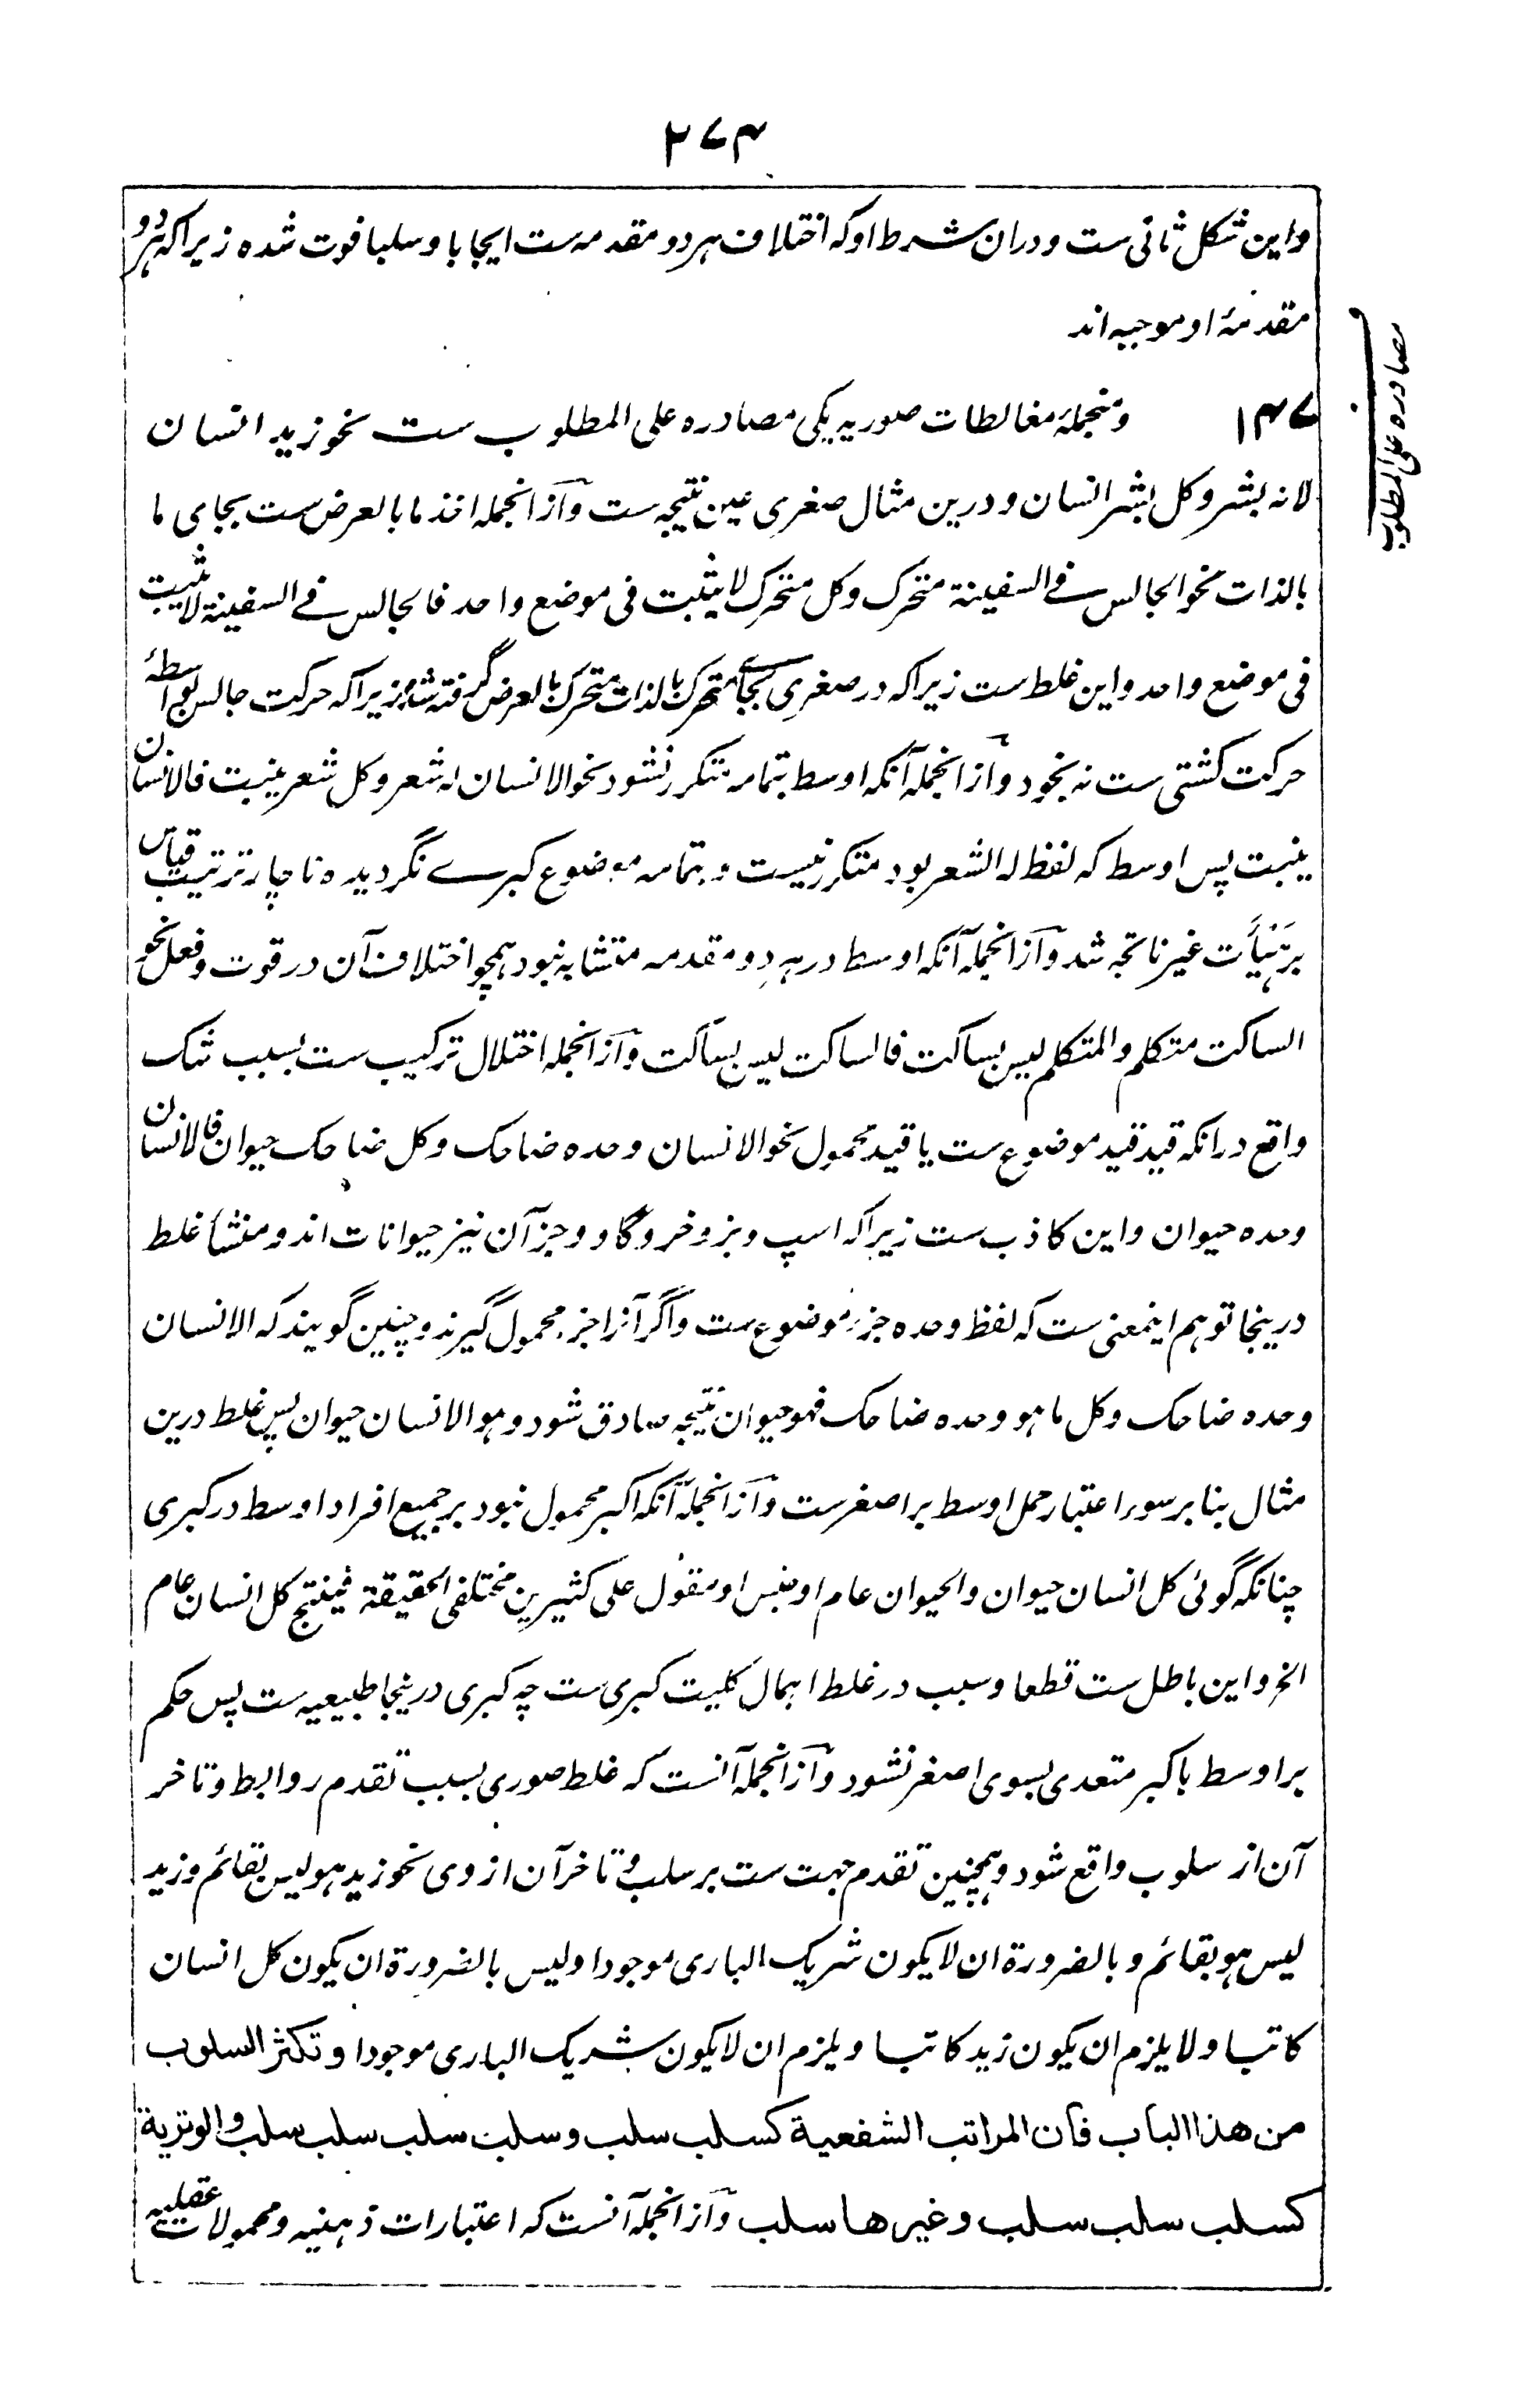 ۲۷۴
واین شکل ثانی ست ودران شرط اوکه اختلاف هر دو مقدمه ست ایجابا وسلبا فوت شده زیراکه هر دو
مقدمهٔ او موجبه اند
مصادره علی المطلوب
۱۴۷ ومنجملهٔ مغالطات صوریه یکی مصادره علی المطلوب ست نحو زید انسان
لانه بشر وکل بشر انسان ودرین مثال صغری عین نتیجه ست وازانجمله اخذ ما بالعرض ست بجای ما
بالذات نحو الجالس فی السفینة متحرک وکل متحرک لا یثبت فی موضع واحد فالجالس فی السفینة لا یثبت
فی موضع واحد واین غلط ست زیراکه در صغری بجای متحرک بالذات متحرک بالعرض گرفته شد زیراکه حرکت جالس بواسطهٔ
حرکت کشتی ست نه بخود وازانجمله آنکه اوسط بتمامه متکرر نشود نحو الانسان له شعر وکل شعر ینبت فالانسان
ینبت پس اوسط که لفظ له الشعر بود متکرر نیست وبتمامه موضوع کبرے نگردیده ناچار ترتیب قیاس
بر هیأت غیر ناتجه شد وازانجمله آنکه اوسط در هر دو مقدمه متشابه نبود همچو اختلاف آن در قوت وفعل نحو
الساکت متکلم والمتکلم لیس بساکت فالساکت لیس بساکت وازانجمله اختلال ترکیب ست بسبب شک
واقع درانکه قید قید موضوع ست یا قید محمول نحو الانسان وحده ضاحک وکل ضاحک حیوان فالانسان
وحده حیوان واین کاذب ست زیراکه اسپ وبز وخر وگاو وجز آن نیز حیوانات اند ومنشأ غلط
درینجا توهم اینمعنی ست که لفظ وحده جزء موضوع ست واگر آنرا جزء محمول گیرند وچنین گویند که الانسان
وحده ضاحک وکل ما هو وحده ضاحک فهو حیوان نتیجه صادق شود وهو الانسان حیوان پس غلط درین
مثال بنا بر سوء اعتبار حمل اوسط بر اصغر ست وازانجمله آنکه اکبر محمول نبود بر جمیع افراد اوسط در کبری
چنانکه گوئی کل انسان حیوان والحیوان عام او جنس او مقول علی کثیرین مختلفی الحقیقة فینتج کل انسان عام
الخ واین باطل ست قطعا وسبب در غلط اهمال کلیت کبری ست چه کبری درینجا طبیعیه ست پس حکم
بر اوسط باکبر متعدی بسوی اصغر نشود وازانجمله آنست که غلط صوری بسبب تقدم روابط وتاخر
آن از سلوب واقع شود وهمچنین تقدم جهت ست بر سلب وتاخر آن از وی نحو زید هو لیس بقائم وزید
لیس هو بقائم وبالضرورة ان لا یکون شریک الباری موجودا ولیس بالضرورة ان یکون کل انسان
کاتبا ولا یلزم ان یکون زید کاتبا ویلزم ان لا یکون شریک الباری موجودا وتکثر السلوب
من هذا الباب فان المراتب الشفعیة کسلب سلب وسلب سلب سلب سلب والوتریة
کسلب سلب سلب وغیرها سلب وازانجمله آنست که اعتبارات ذهنیه ومحمولات عقلیه